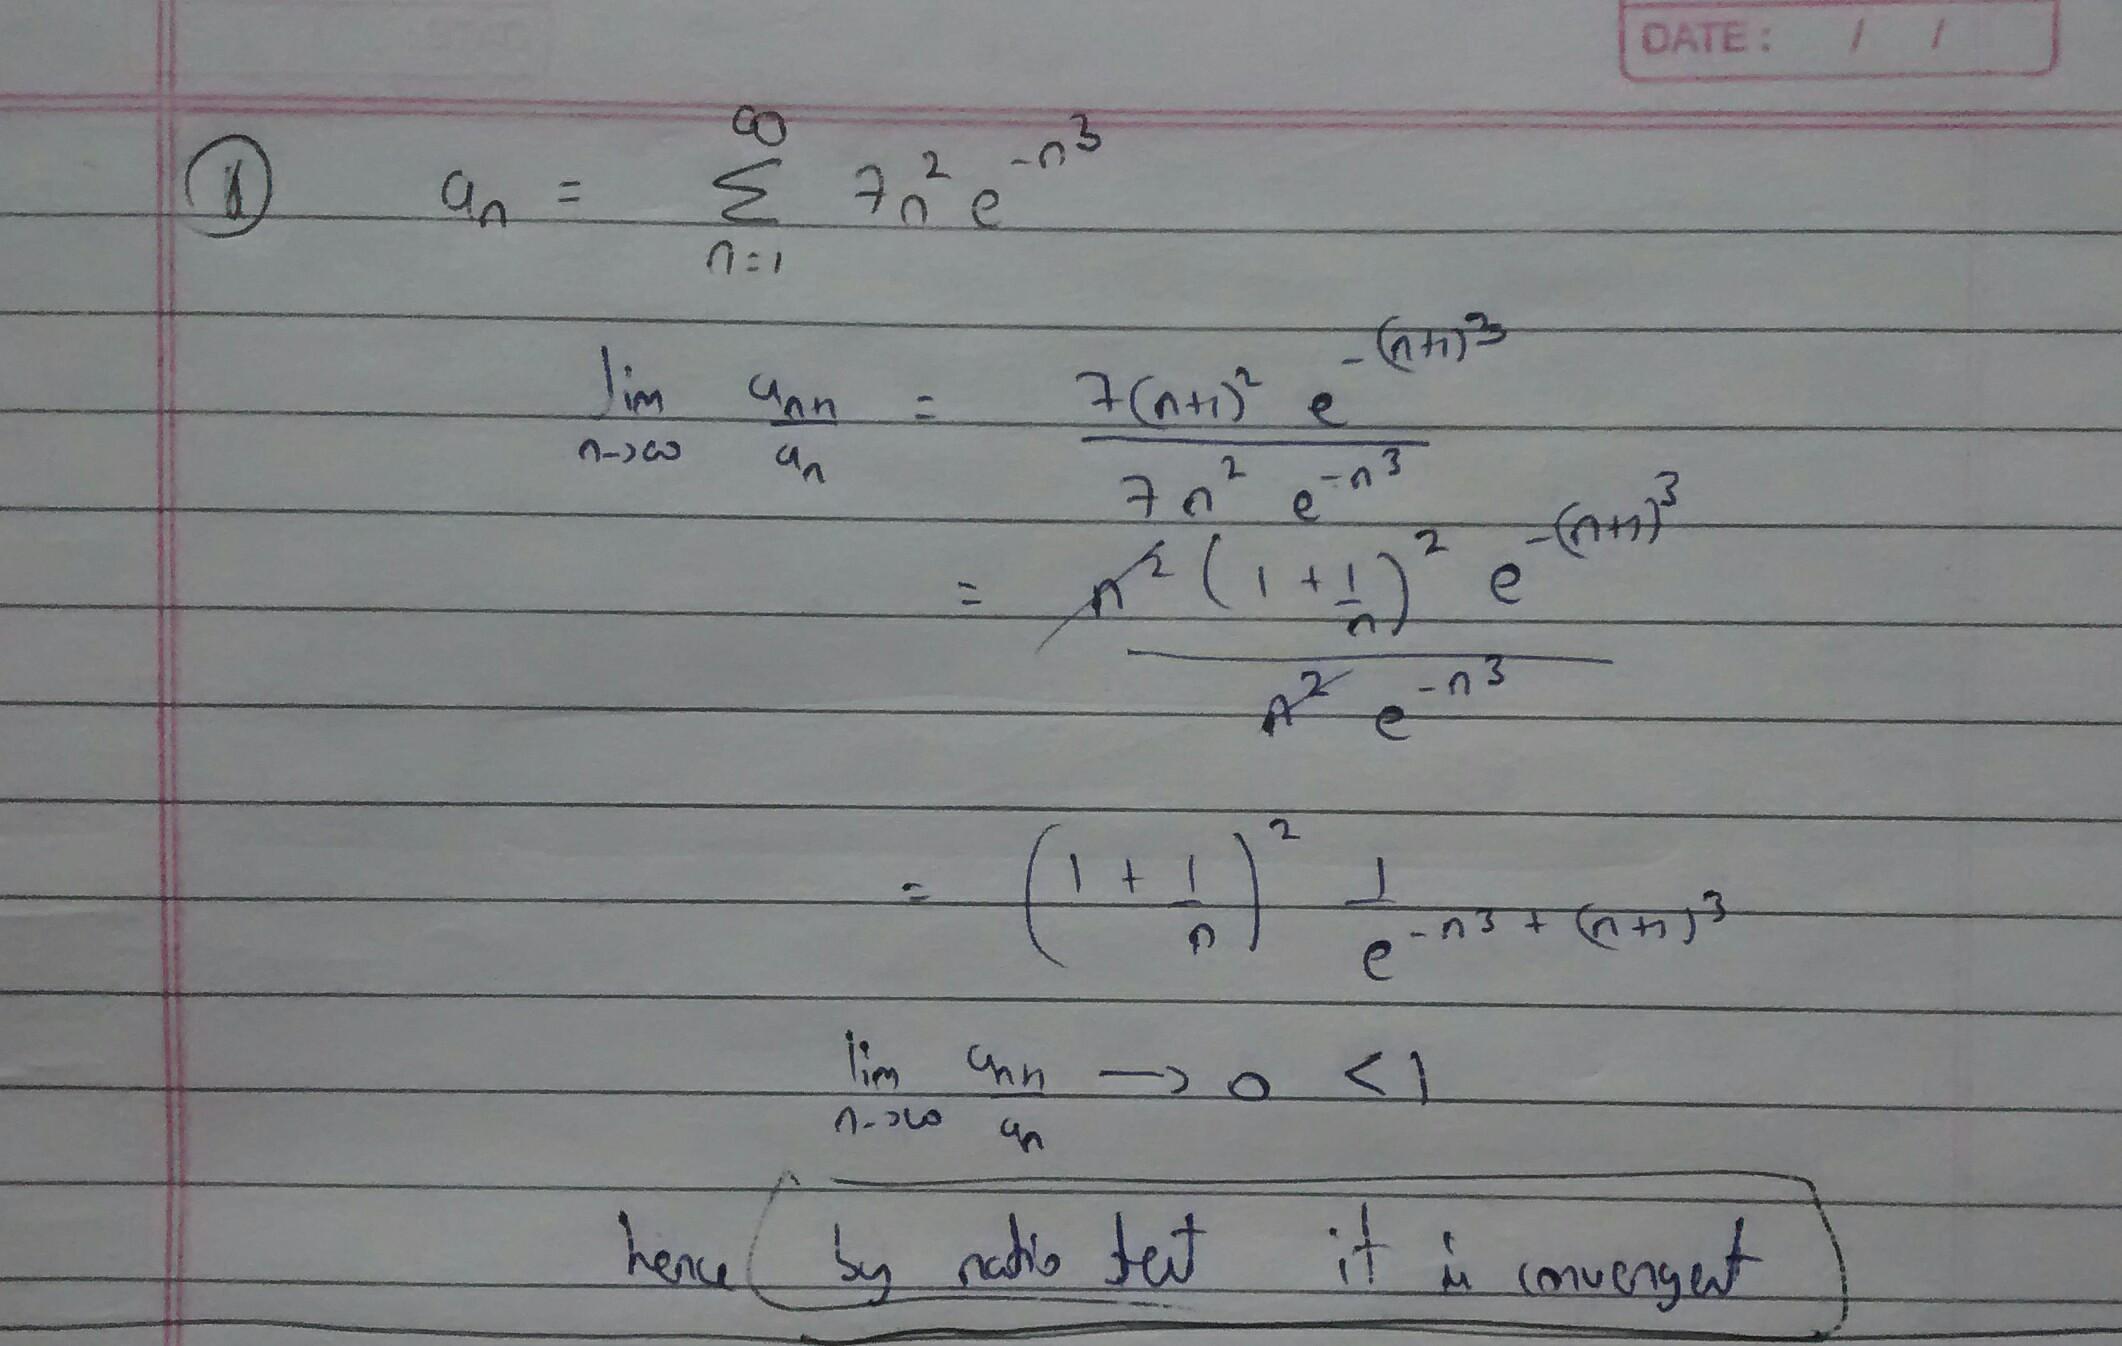 DATE: / /
① aₙ = ∑_{n=1}^{∞} 7n² e^{-n³}
lim_{n→∞} a_{n+1}/aₙ = 7(n+1)² e^{-(n+1)³} / 7n² e^{-n³}
= n² (1 + 1/n)² e^{-(n+1)³} / n² e^{-n³}
= (1 + 1/n)² 1/e^{-n³ + (n+1)³}
lim_{n→∞} a_{n+1}/aₙ → 0 < 1
hence by ratio test it is convergent